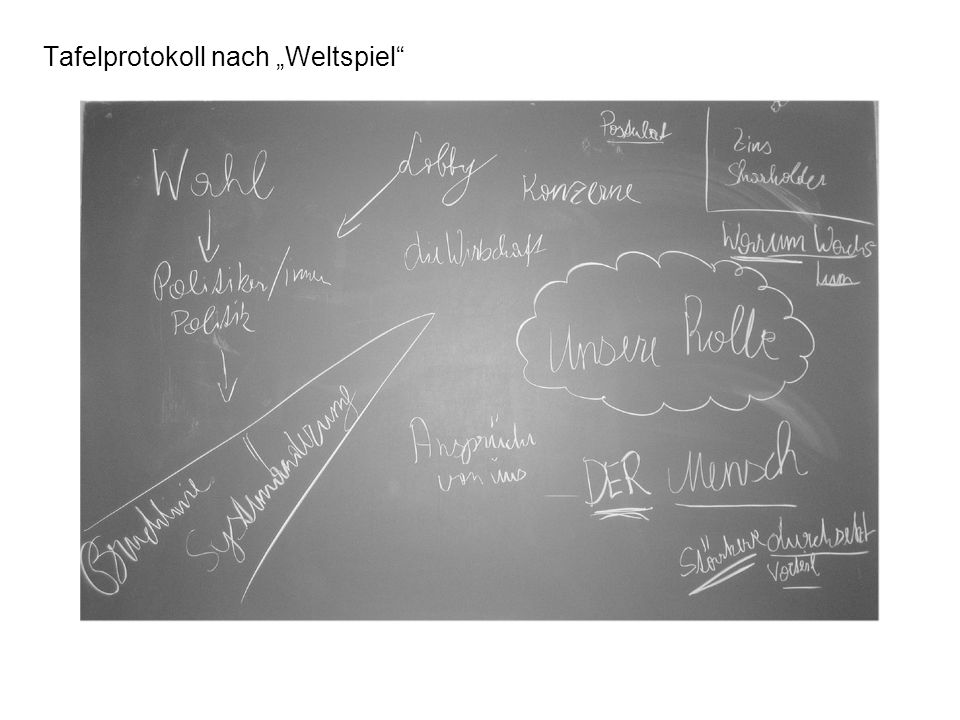 Tafelprotokoll nach „Weltspiel“
Wahl
Politiker/innen
Politik
Bruchlinie
Systemänderung
Lobby
Konzerne
die Wirtschaft
Postulat
Zins
Shareholder
Warum Wachs
tum
Unsere Rolle
Ansprüche
von uns
DER Mensch
Stärkere durchsetzt
Vorteil